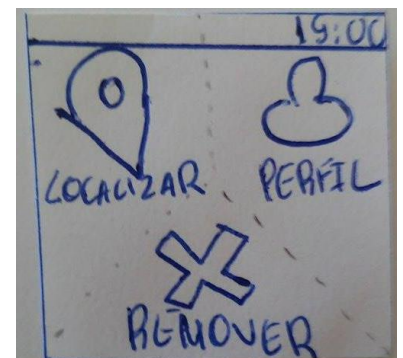 19:00
LOCALIZAR PERFIL
REMOVER